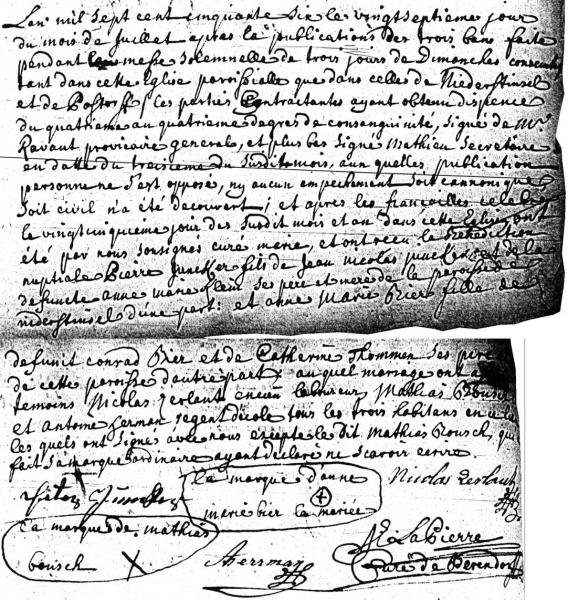 Lan mil sept cent cinquante six le vingt septieme jour
du mois de juillet apres la publications des trois bans faite
pendant messe solemnelle de trois jours de Dimanches consecutifs
tant dans cette Eglise paroissialle que dans celles de Niederstinsel
et de Postorff les parties Contractantes ayant obtenu dispence
du quatrieme au quatrieme dagres de consanguinité, signé de Mr.
Ravant provicaire generale, et plus bas signé Mathieu Secretaire
en datte du treisieme du susdit mois, aux quelles publication
personne ne s'est opposé, ny aucun empechement soit cannonique
soit civil n'a été decouvert; et après les fiancailles celebrés
le vingt cinquieme jour des susdit mois et an dans cette Eglise ont
été par nous sorsignes curé marie, et ont recu la Benediction
nuptiale Pierre Juncker fils de Jean nicolas juncker et de la
defuncte anne marie kleim ses pere et mere de la paroisse de
niderstinsel d'une part: et anne Marie Bier fille de
defunt conrad Bier et de Catherine Thommen ses pere
de cette paroisse d'autre part, au quel marrage ont a
temoins Nicolas Zerlaut encien laboureur, Mathias Bousch
et Antoine herman, regent decole tous les trois habitans en ce lieu
les quels ont signes avec nous exceptes le dit Mathias Bousch, qui
fait sa marque ordinaire ayant declaré ne scavoir ecrire.
la marque d'anne
marie bier la mariée
Nicolas Zerlauth
la marque de mathias
bousch X
Aherman
N. LaPierre
Curé de Berendorf